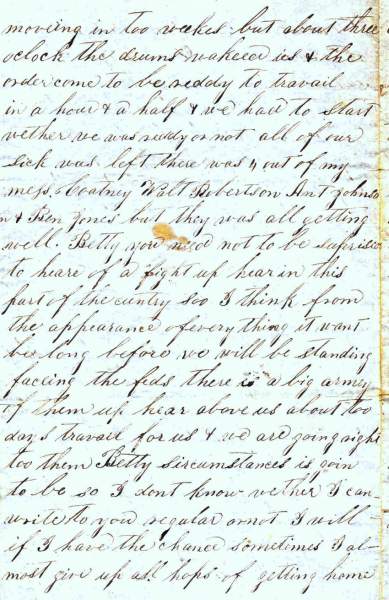 moveing in too weekes but about three
oclock the drums wakeed us & the
order come to be reddy to travail
in a hour & a half & we had to start
wether we was reddy or not all of our
sick was left there was 4 out of my
mess, Coatney Walt Robertson Ant Johnso
n & Ben Jones but they was all getting
well. Betty you need not to be suprised
to heare of a fight up hear in this
part of the cuntry soo I think from
the appearance of every thing it wont
be long before we will be standing
faceing the feds there is a big army
of them up hear above us about too
days travail for us & we are going right
too them Betty sircumstances is goin
to be so I dont know wether I can
write to you regular or not I will
if I have the chance sometimes I al-
most give up all hops of getting home